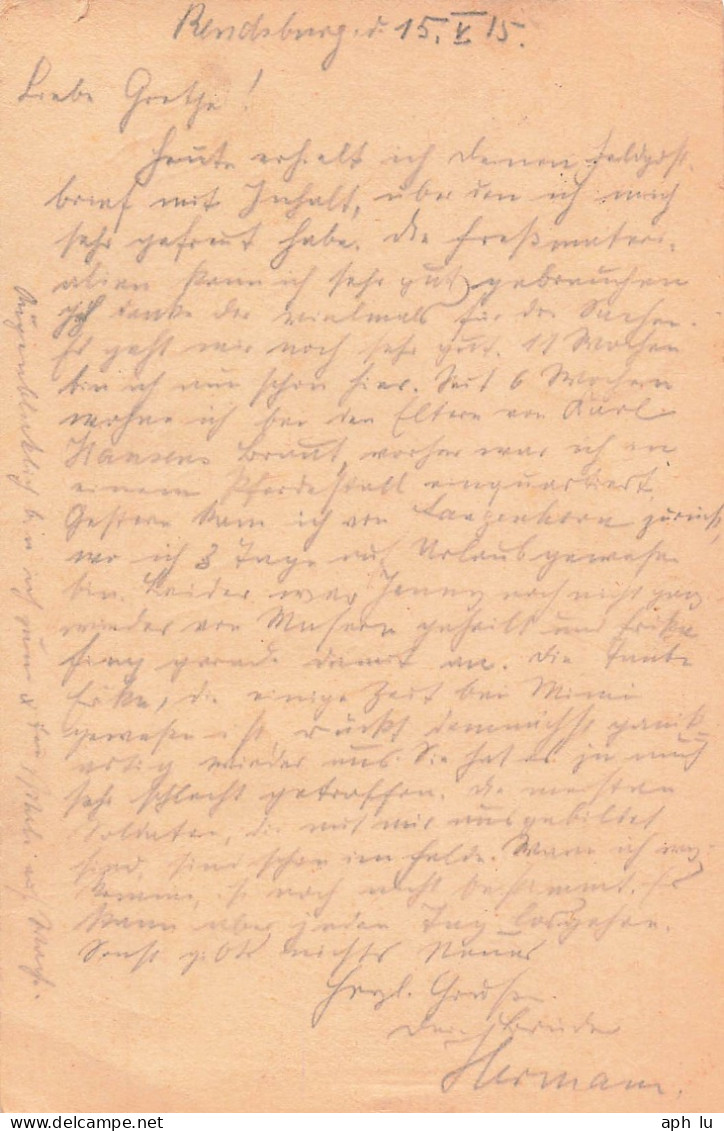 Rendsburg. d. 15. V. 15.
Liebe Grethe!
Heute erhielt ich deinen Feldpost
brief mit Inhalt, über den ich mich
sehr gefreut habe. Die Freßmateri-
alien kann ich sehr gut gebrauchen
Ich danke dir vielmals für die Sachen.
Es geht mir noch sehr gut. 11 Wochen
bin ich nun schon hier. Seit 6 Wochen
wohne ich bei den Eltern von Karl
Hansens Braut, vorher war ich in
einem Pferdestall einquartiert.
Gestern kam ich von Langenhorn zurück,
wo ich 3 Tage auf Urlaub gewesen
bin. Leider war Jenny noch nicht ganz
wieder von Masern geheilt und Erika
fing gerade damit an. Die Tante
Erika, die einige Zeit bei Mimi
gewesen ist rückt demnächst
artig wieder aus. Sie hat es ja auch
sehr schlecht getroffen. Die meisten
Soldaten, die mit mir ausgebildet
sind, sind schon im Felde. Wann ich weg
komme, ist noch nicht bestimmt. Es
kann aber jeden Tag losgehen.
Sonst gibts nichts Neues
Herzl. Grüße
Dein Bruder
Hermann.
Augenblicklich bin ich zum auf Wache.
aph lu